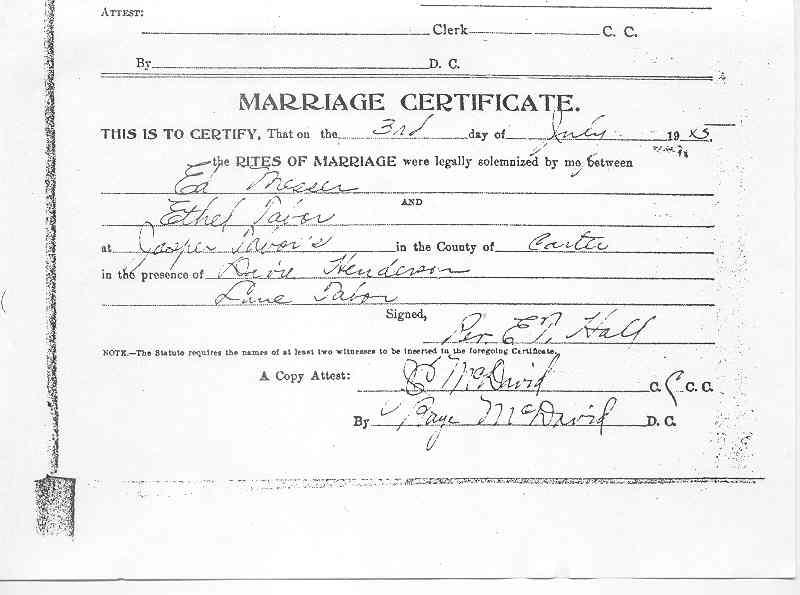 ATTEST:
Clerk C. C.
By D. C.
MARRIAGE CERTIFICATE.
THIS IS TO CERTIFY, That on the 3rd day of July 19
the RITES OF MARRIAGE were legally solemnized by me between
Ed Messer
AND
Ethel Tabor
at Jasper Tabor's in the County of Carter
in the presence of Henderson
Tabor
Signed,
Rev. Hall
NOTE.—The Statute requires the names of at least two witnesses to be inserted in the foregoing Certificate.
A Copy Attest: McDavid C. C. C.
By Faye McDavid D. C.